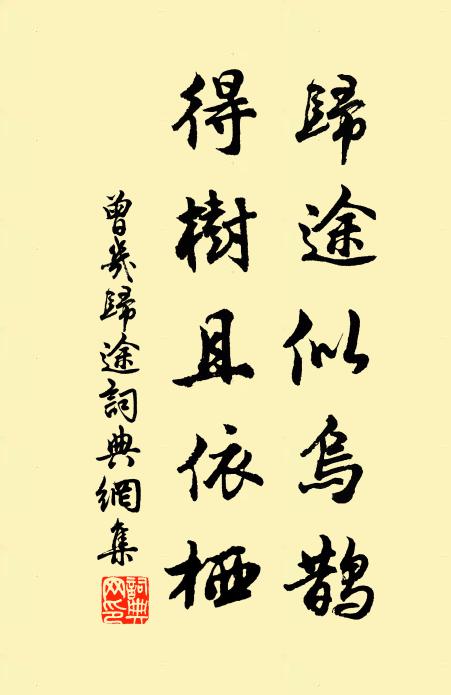 歸途似烏鵲
得樹且依栖
曾幾歸途詞典網集
詞典網印